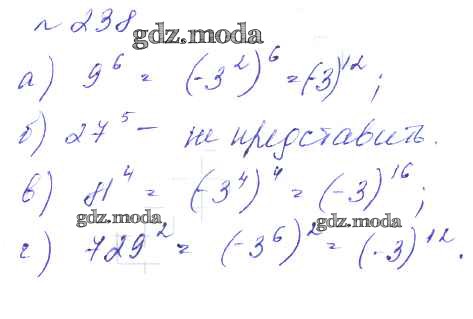 № 238
gdz.moda
а) 9⁶ = (-3²)⁶ = (-3)¹²;
б) 27⁵ — не представить.
в) 81⁴ = (-3⁴)⁴ = (-3)¹⁶;
gdz.moda gdz.moda
г) 729² = (-3⁶)² = (-3)¹².